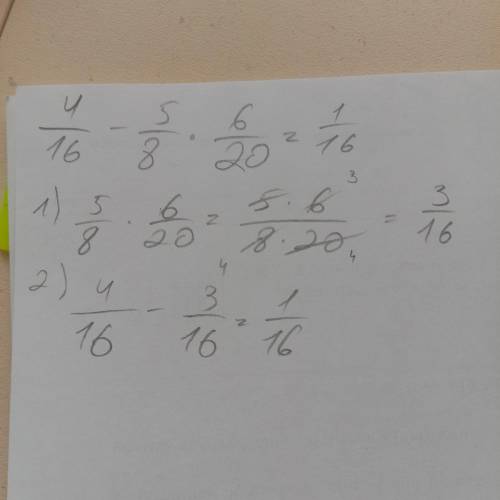 4/16 - 5/8 · 6/20 = 1/16
1) 5/8 · 6/20 = 5·6 3/8·20 4 = 3/16
2) 4/16 - 3/16 4 = 1/16